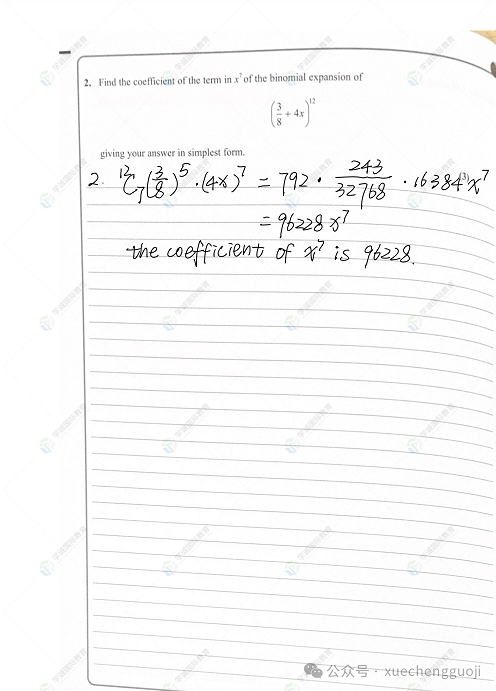 2. Find the coefficient of the term in x⁷ of the binomial expansion of
(3/8 + 4x)¹²
giving your answer in simplest form.
(3)
2. ¹²C₇(3/8)⁵·(4x)⁷ = 792 · 243/32768 · 16384x⁷
= 96228x⁷
the coefficient of x⁷ is 96228.
公众号 · xuechengguoji